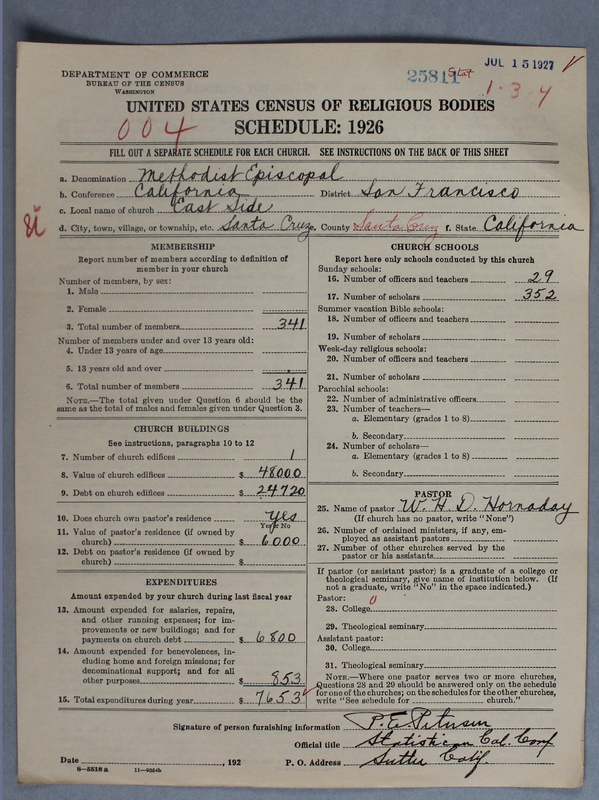 JUL 15 1927 √
DEPARTMENT OF COMMERCE
BUREAU OF THE CENSUS
WASHINGTON
25811 Stat
1-3-4
UNITED STATES CENSUS OF RELIGIOUS BODIES
004 SCHEDULE: 1926
FILL OUT A SEPARATE SCHEDULE FOR EACH CHURCH. SEE INSTRUCTIONS ON THE BACK OF THIS SHEET
a. Denomination Methodist Episcopal
b. Conference California District San Francisco
c. Local name of church East Side
d. City, town, village, or township, etc. Santa Cruz e. County Santa Cruz f. State California
MEMBERSHIP
Report number of members according to definition of
member in your church
Number of members, by sex:
1. Male
2. Female
3. Total number of members 341
Number of members under and over 13 years old:
4. Under 13 years of age
5. 13 years old and over
6. Total number of members 341
NOTE.—The total given under Question 6 should be the
same as the total of males and females given under Question 3.
CHURCH BUILDINGS
See instructions, paragraphs 10 to 12
7. Number of church edifices 1
8. Value of church edifices $ 48000
9. Debt on church edifices $ 24720
10. Does church own pastor's residence yes
Yes or No
11. Value of pastor's residence (if owned by
church) $ 6000
12. Debt on pastor's residence (if owned by
church) $
EXPENDITURES
Amount expended by your church during last fiscal year
13. Amount expended for salaries, repairs,
and other running expenses; for im-
provements or new buildings; and for
payments on church debt $ 6800
14. Amount expended for benevolences, in-
cluding home and foreign missions; for
denominational support; and for all
other purposes $ 853
15. Total expenditures during year $ 7653 √
CHURCH SCHOOLS
Report here only schools conducted by this church
Sunday schools:
16. Number of officers and teachers 29
17. Number of scholars 352
Summer vacation Bible schools:
18. Number of officers and teachers
19. Number of scholars
Week-day religious schools:
20. Number of officers and teachers
21. Number of scholars
Parochial schools:
22. Number of administrative officers
23. Number of teachers—
a. Elementary (grades 1 to 8)
b. Secondary
24. Number of scholars—
a. Elementary (grades 1 to 8)
b. Secondary
PASTOR
25. Name of pastor W. H. D. Hornaday
(If church has no pastor, write "None")
26. Number of ordained ministers, if any, em-
ployed as assistant pastors
27. Number of other churches served by the
pastor or his assistants
If pastor (or assistant pastor) is a graduate of a college or
theological seminary, give name of institution below. (If
not a graduate, write "No" in the space indicated.)
Pastor: 0
28. College
29. Theological seminary
Assistant pastor:
30. College
31. Theological seminary
NOTE.—Where one pastor serves two or more churches,
Questions 28 and 29 should be answered only on the schedule
for one of the churches; on the schedules for the other churches,
write "See schedule for church."
Signature of person furnishing information P. E. Petersen
Official title Statistician Cal. Conf
Date , 192 P. O. Address Sutter Calif.
8—5518 a 11—9054b